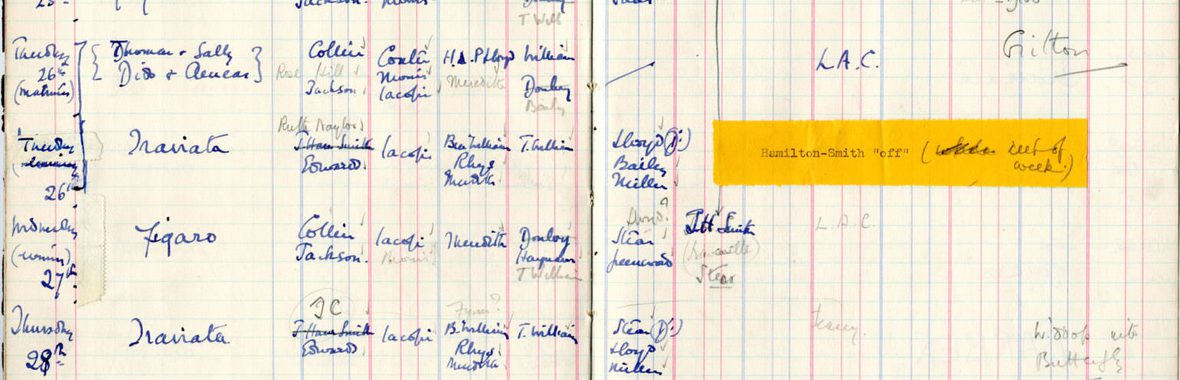 Tuesday
26th
(matinée)
Thomas & Sally
Dido & Aeneas
Collin
Rose Hill
Jackson
Coates
Morris
Iacopi
H. P. Lloyd
Meredith
William
Donlevy
Baily
L.A.C.
Tuesday
evening
26th
Traviata
Ruth Naylor
J. Ham Smith
Edwards
Iacopi
Ben William
Rhys
Meredith
T. William
Lloyd
Bailey
Miller
Hamilton-Smith "off" ( rest of
week)
Wednesday
(evening)
27th
Figaro
Collin
Jackson.
Iacopi
Morris
Meredith
Donlevy
Haymans
T William
Lloyd?
Stear
Greenwood
J H Smith
Stear
L.A.C.
Thursday
28th
Traviata
JC
J Ham Smith
Edwards
Iacopi
B. William
Rhys
Meredith
T. William
Stear
Lloyd
Miller
Butterfly